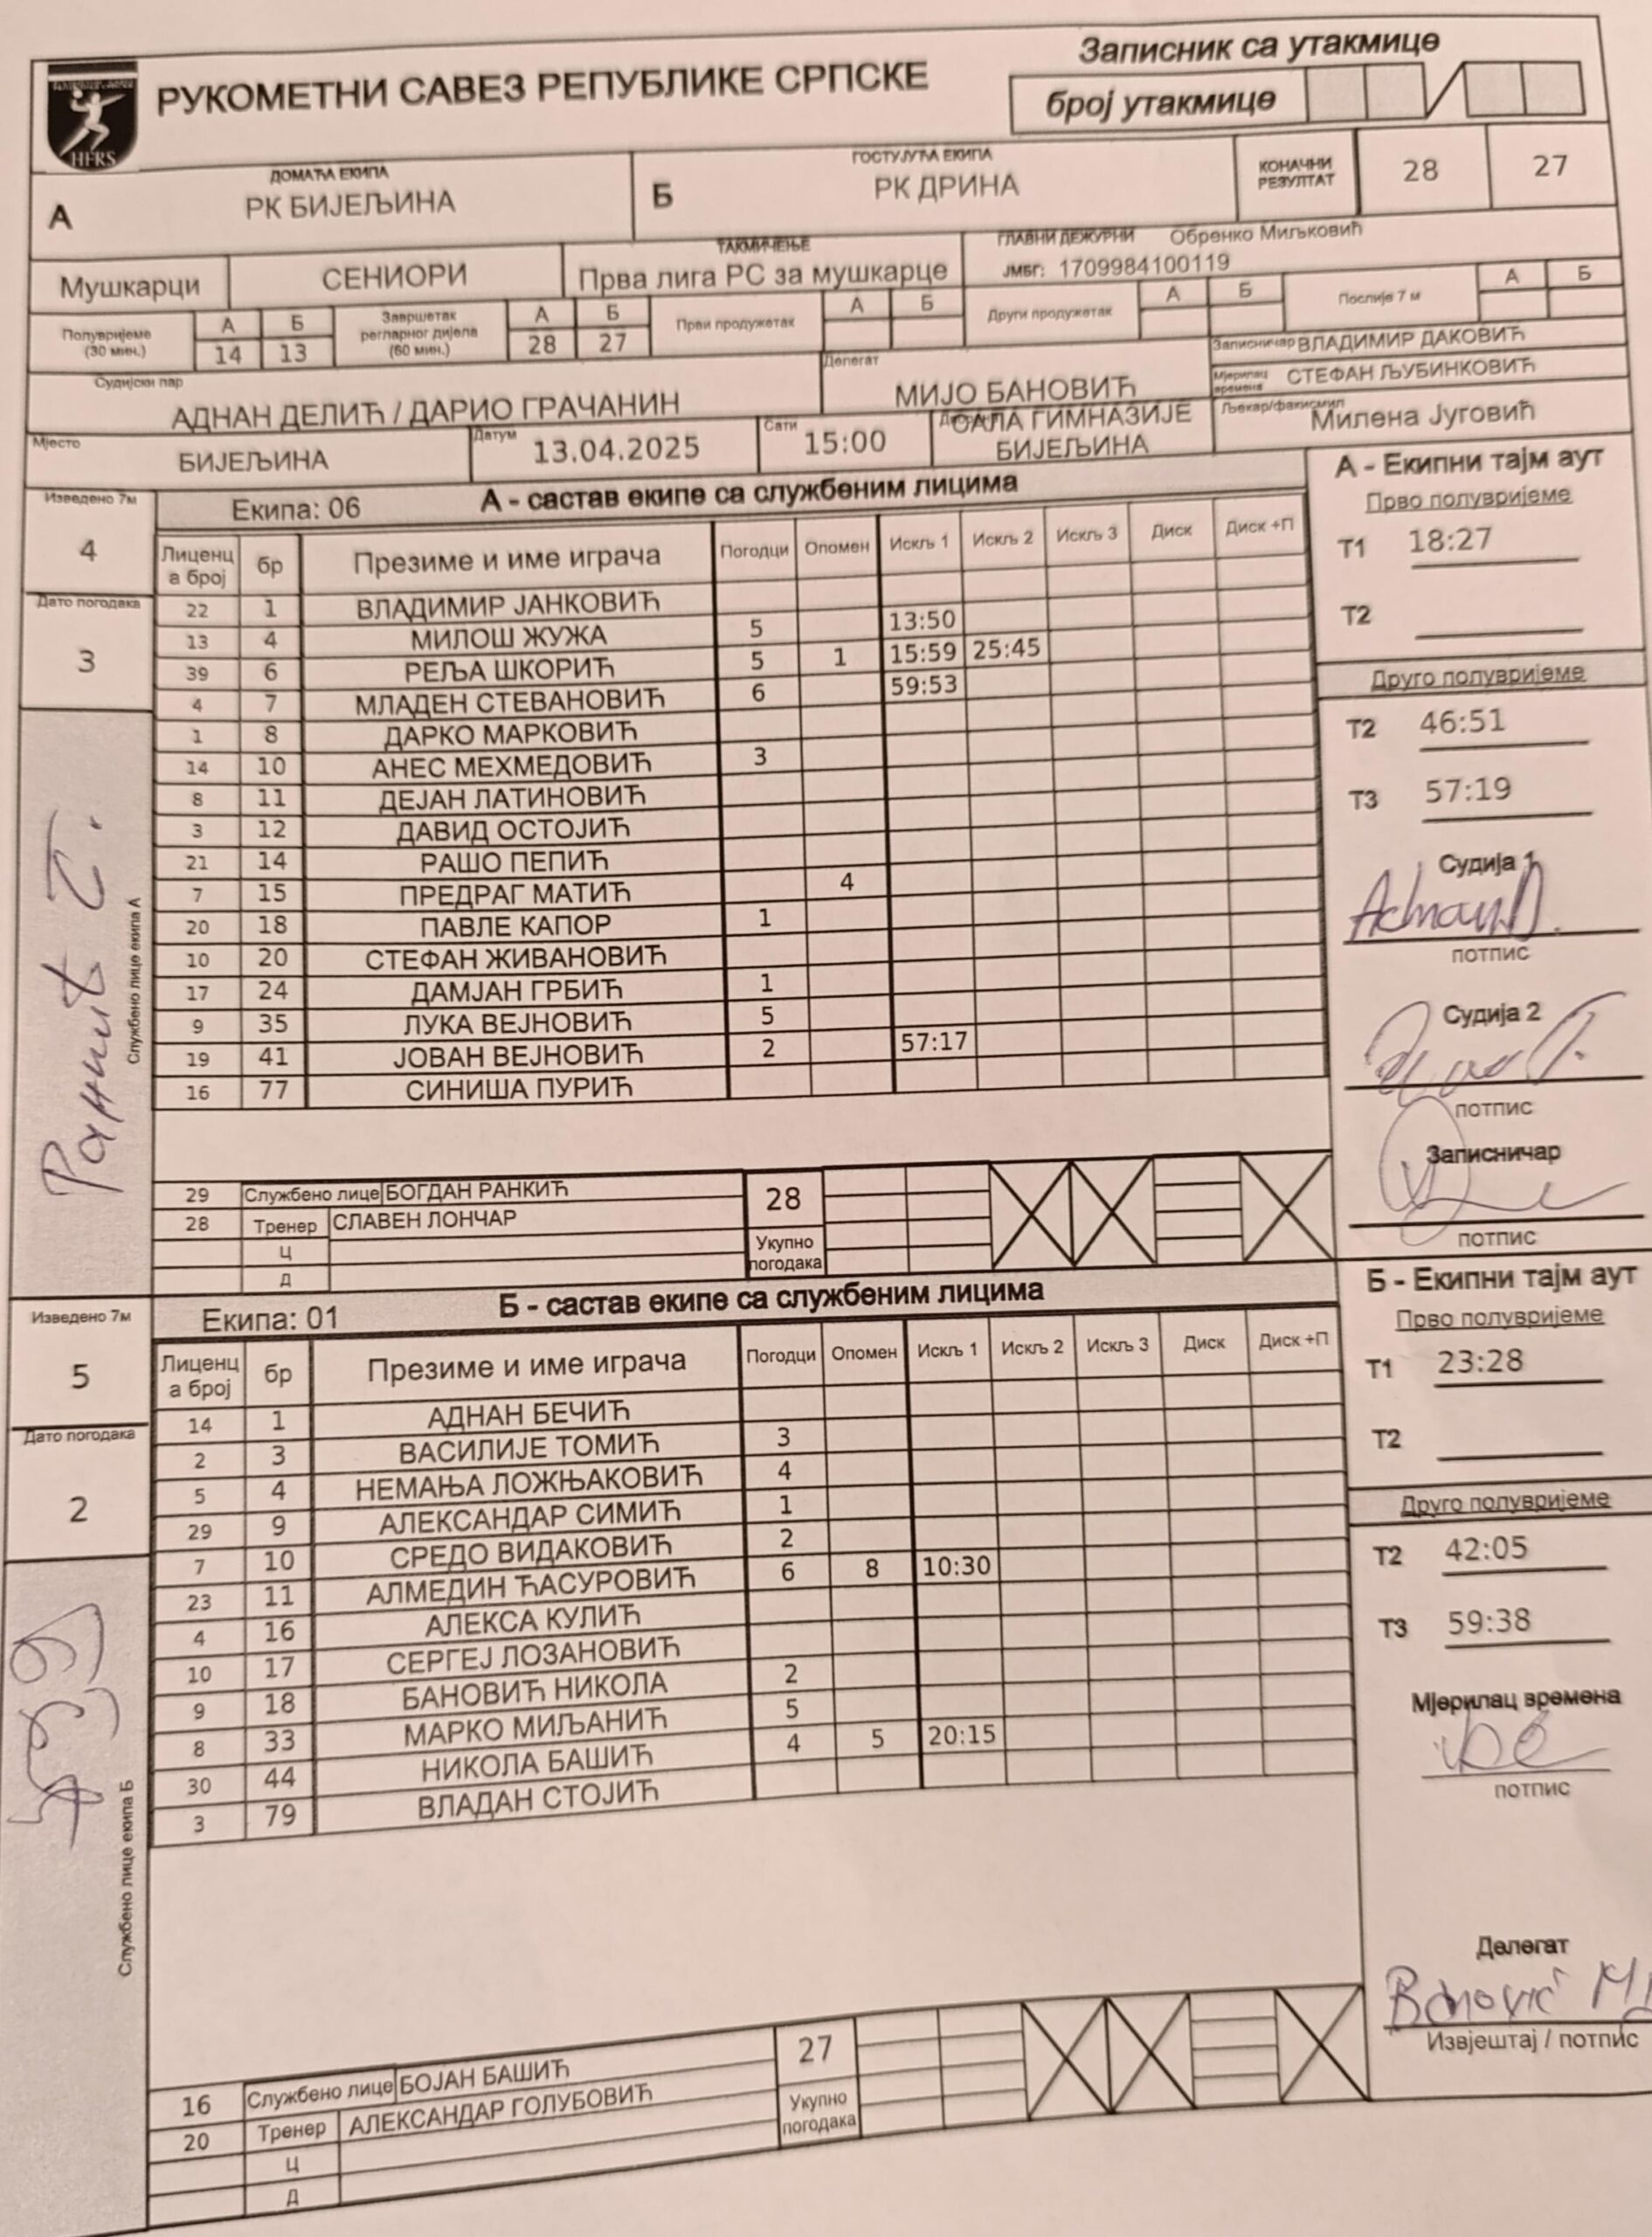 Записник са утакмице
РУКОМЕТНИ САВЕЗ РЕПУБЛИКЕ СРПСКЕ
број утакмице /
HFRS
ДОМАЋА ЕКИПА
А РК БИЈЕЉИНА
ГОСТУЈУЋА ЕКИПА
Б РК ДРИНА
КОНАЧНИ РЕЗУЛТАТ 28 27
Мушкарци СЕНИОРИ
ТАКМИЧЕЊЕ
Прва лига РС за мушкарце
ГЛАВНИ ДЕЖУРНИ Обренко Миљковић
ЈМБГ: 1709984100119
Полувријеме (30 мин.) А 14 Б 13
Завршетак регларног дијела (60 мин.) А 28 Б 27
Први продужетак А Б
Други продужетак А Б
Послије 7 м А Б
Судијски пар
АДНАН ДЕЛИЋ / ДАРИО ГРАЧАНИН
Делегат
МИЈО БАНОВИЋ
Записничар ВЛАДИМИР ДАКОВИЋ
Мјерилац времена СТЕФАН ЉУБИНКОВИЋ
Љекар/факисмил Милена Југовић
Мјесто БИЈЕЉИНА
Датум 13.04.2025
Сати 15:00
САЛА ГИМНАЗИЈЕ БИЈЕЉИНА
Изведено 7м
4
Дато погодака
3
Службено лице екипа А
Екипа: 06 А - састав екипе са службеним лицима
Лиценц а број бр Презиме и име играча Погодци Опомен Искљ 1 Искљ 2 Искљ 3 Диск Диск +П
22 1 ВЛАДИМИР ЈАНКОВИЋ
13 4 МИЛОШ ЖУЖА 5 13:50
39 6 РЕЉА ШКОРИЋ 5 1 15:59 25:45
4 7 МЛАДЕН СТЕВАНОВИЋ 6 59:53
1 8 ДАРКО МАРКОВИЋ
14 10 АНЕС МЕХМЕДОВИЋ 3
8 11 ДЕЈАН ЛАТИНОВИЋ
3 12 ДАВИД ОСТОЈИЋ
21 14 РАШО ПЕПИЋ
7 15 ПРЕДРАГ МАТИЋ 4
20 18 ПАВЛЕ КАПОР 1
10 20 СТЕФАН ЖИВАНОВИЋ
17 24 ДАМЈАН ГРБИЋ 1
9 35 ЛУКА ВЕЈНОВИЋ 5
19 41 ЈОВАН ВЕЈНОВИЋ 2 57:17
16 77 СИНИША ПУРИЋ
29 Службено лице БОГДАН РАНКИЋ
28 Тренер СЛАВЕН ЛОНЧАР
Ц
Д
28
Укупно погодака
А - Екипни тајм аут
Прво полувријеме
Т1 18:27
Т2
Друго полувријеме
Т2 46:51
Т3 57:19
Судија 1
потпис
Судија 2
потпис
Записничар
потпис
Изведено 7м
5
Дато погодака
2
Службено лице екипа Б
Екипа: 01 Б - састав екипе са службеним лицима
Лиценц а број бр Презиме и име играча Погодци Опомен Искљ 1 Искљ 2 Искљ 3 Диск Диск +П
14 1 АДНАН БЕЧИЋ
2 3 ВАСИЛИЈЕ ТОМИЋ 3
5 4 НЕМАЊА ЛОЖЊАКОВИЋ 4
29 9 АЛЕКСАНДАР СИМИЋ 1
7 10 СРЕДО ВИДАКОВИЋ 2
23 11 АЛМЕДИН ЋАСУРОВИЋ 6 8 10:30
4 16 АЛЕКСА КУЛИЋ
10 17 СЕРГЕЈ ЛОЗАНОВИЋ
9 18 БАНОВИЋ НИКОЛА 2
8 33 МАРКО МИЉАНИЋ 5
30 44 НИКОЛА БАШИЋ 4 5 20:15
3 79 ВЛАДАН СТОЈИЋ
16 Службено лице БОЈАН БАШИЋ
20 Тренер АЛЕКСАНДАР ГОЛУБОВИЋ
Ц
Д
27
Укупно погодака
Б - Екипни тајм аут
Прво полувријеме
Т1 23:28
Т2
Друго полувријеме
Т2 42:05
Т3 59:38
Мјерилац времена
потпис
Делегат
Banović
Извјештај / потпис